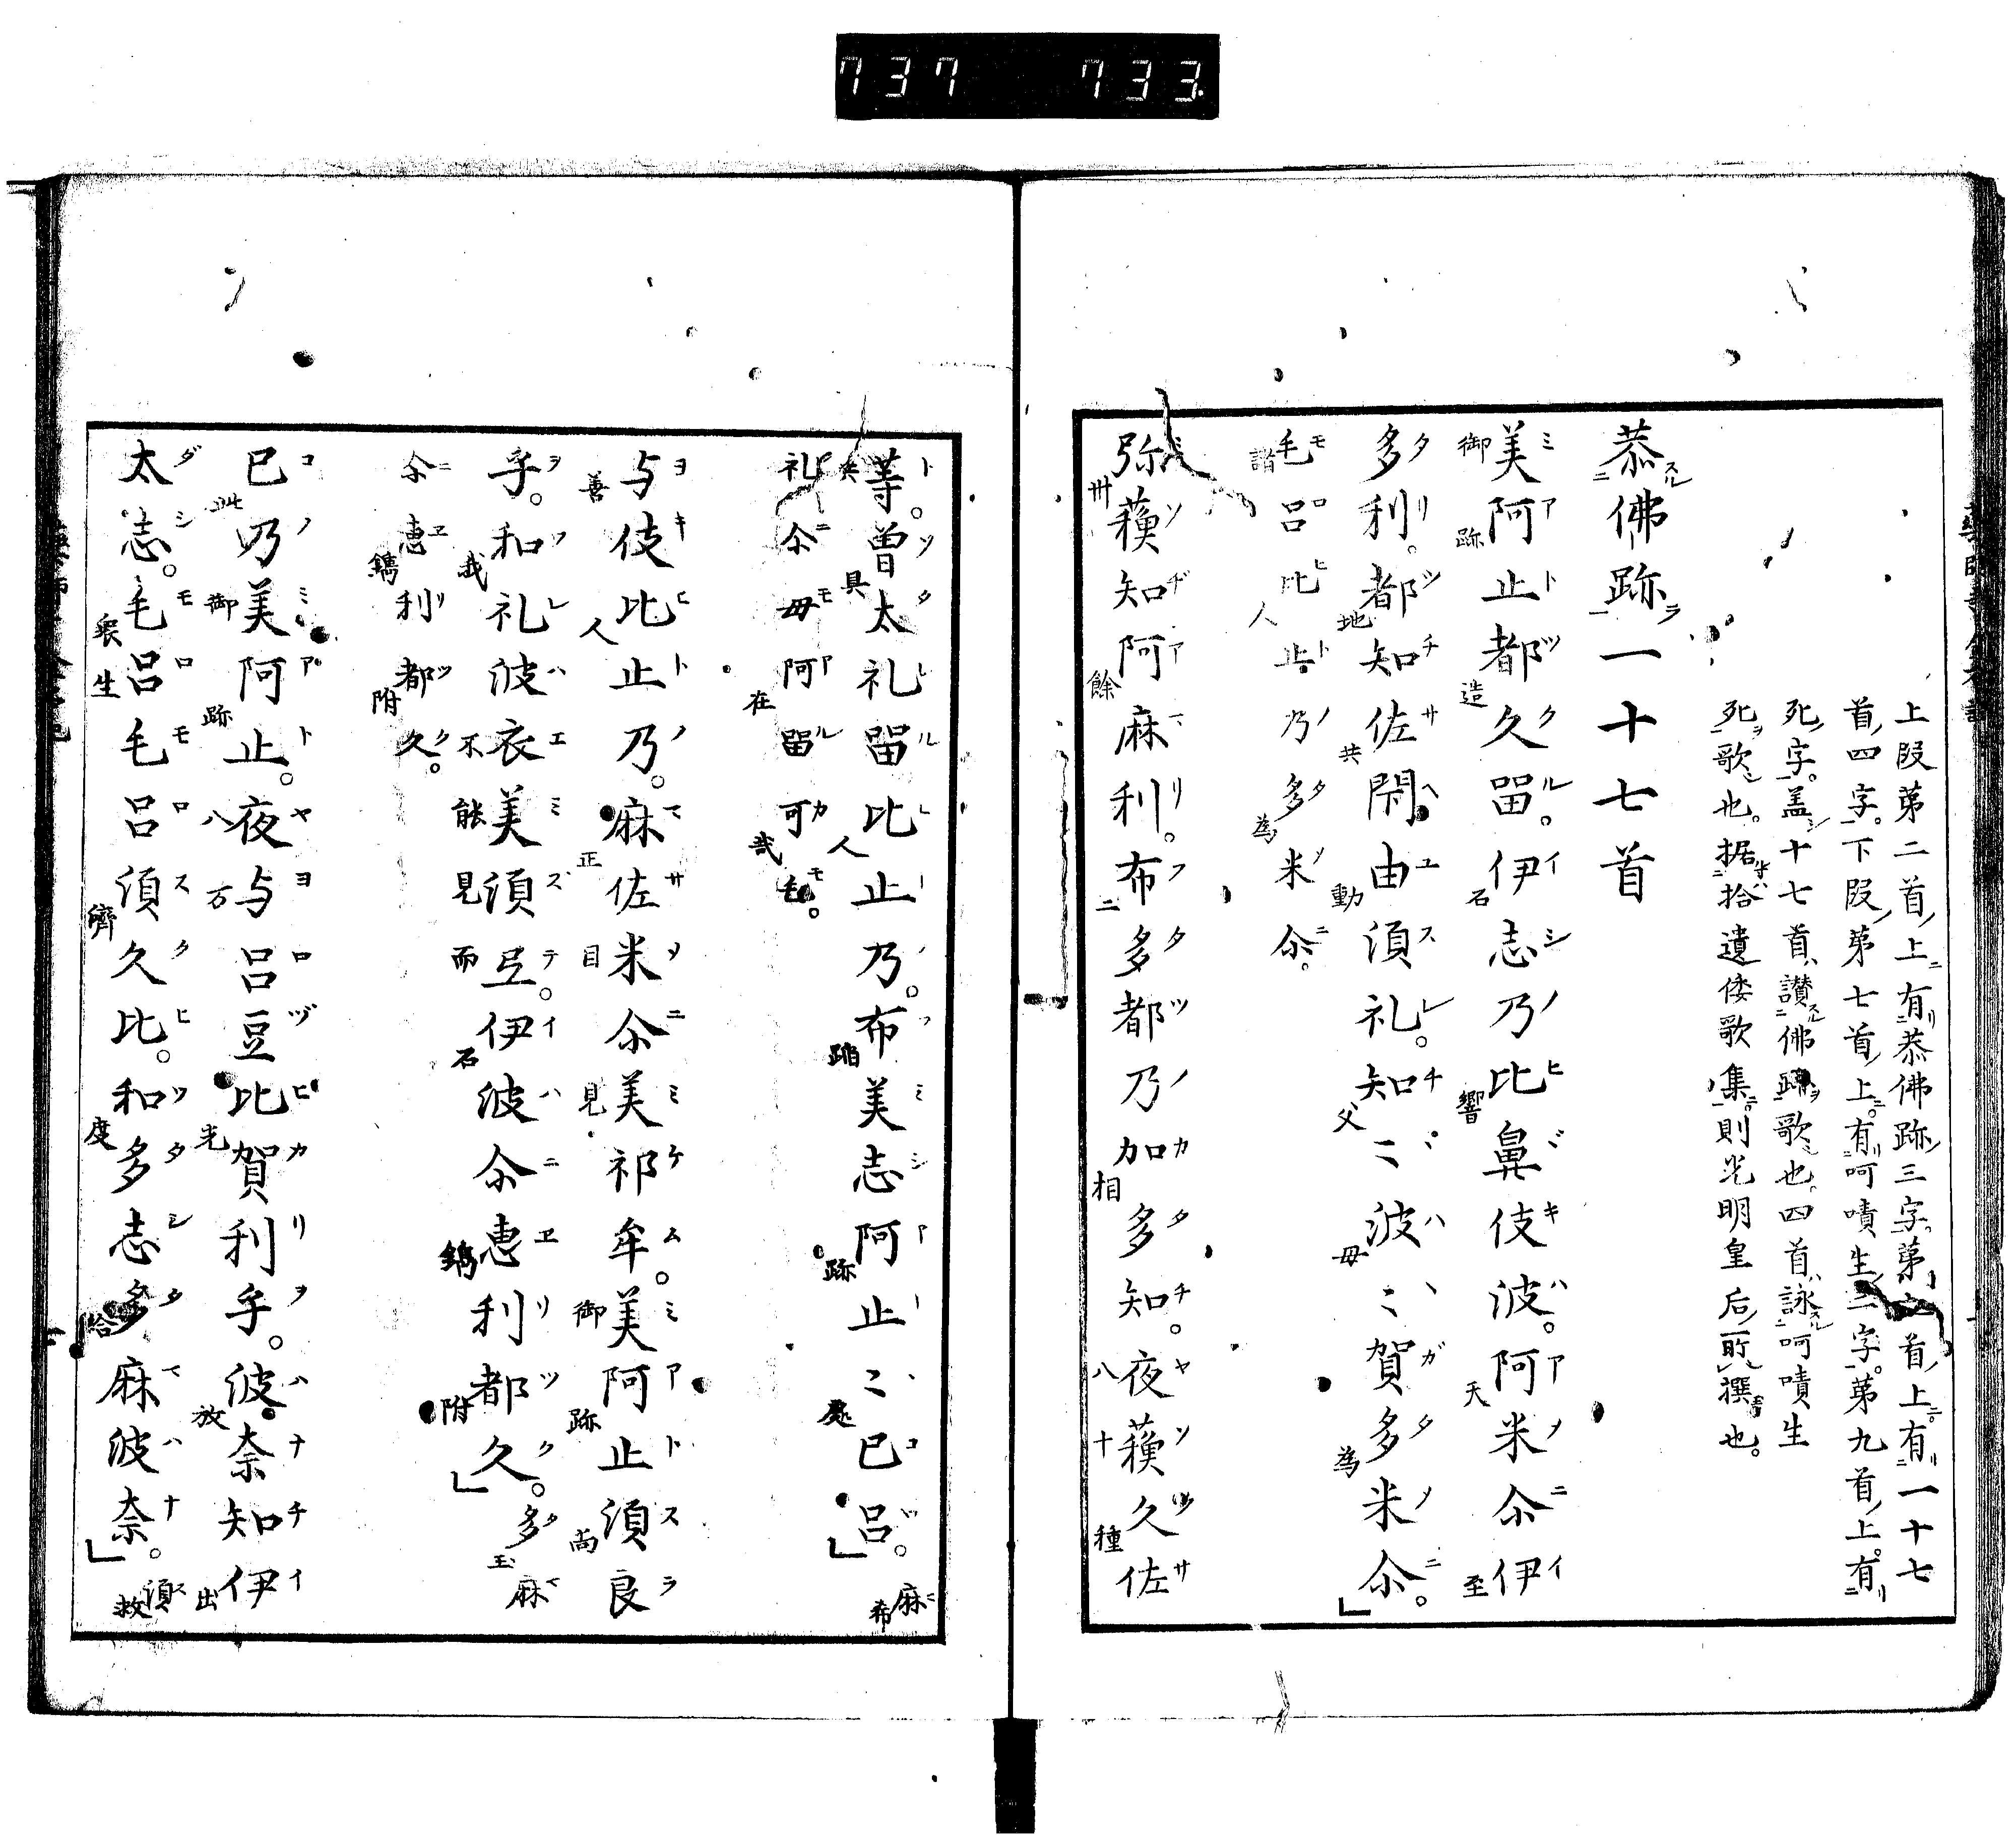 737 733
上段第二首上有恭佛跡三字。第六首上有一十七
首四字。下段第七首上有呵嘖生二字。第九首上有
死字。盖十七首讃佛跡歌也。四首詠呵嘖生
死歌也。据拾遺倭歌集則光明皇后所撰也。
恭佛跡一十七首
美阿止都久留。伊志乃比鼻伎波。阿米尒伊
多利。都知佐閇由須礼。知〻波〻賀多米尒。」
毛呂比止乃多米尒。
弥蘓知阿麻利。布多都乃加多知。夜蘓久佐
等。曽太礼留比止乃。布美志阿止〻己呂。」麻
礼尒毋阿留可毛。
与伎比止乃。麻佐米尒美祁牟。美阿止須良
乎。和礼波衣美須弖。伊波尒恵利都久。」多麻
尒恵利都久。
己乃美阿止。夜与呂豆比賀利乎。波奈知伊
太志。毛呂毛呂須久比。和多志多麻波奈。」須